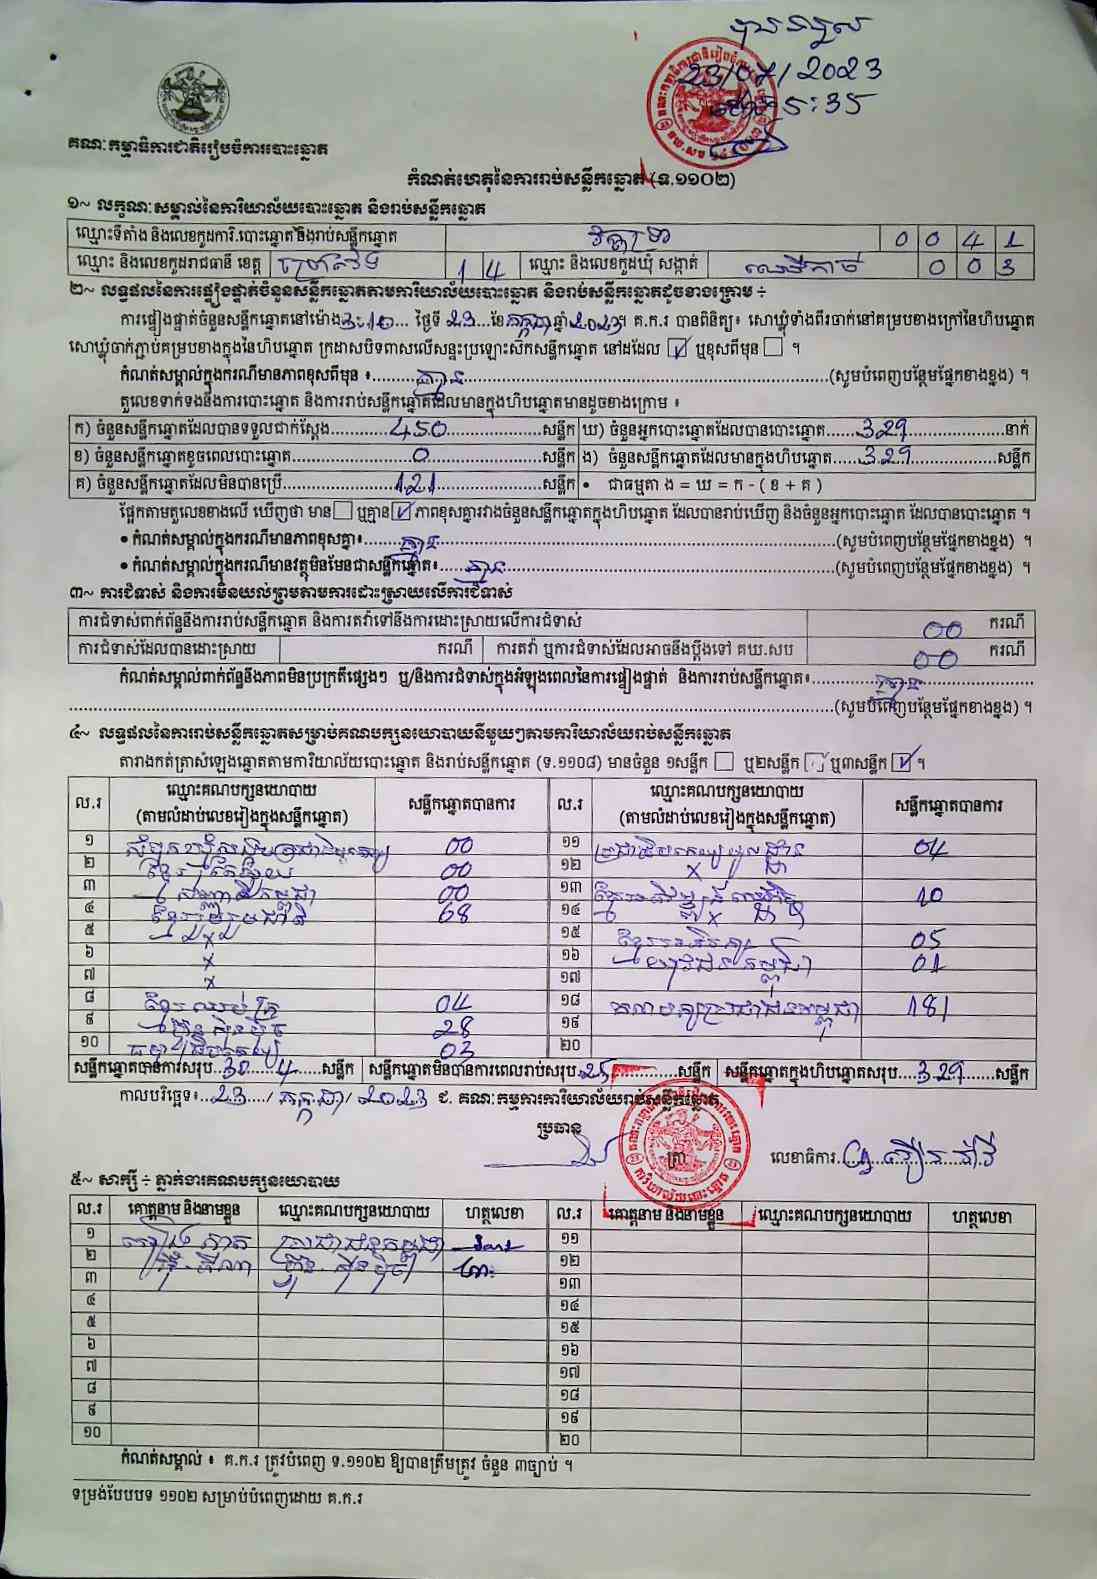 បានទទួល
23/07/2023
គណៈកម្មាធិការជាតិរៀបចំការបោះឆ្នោត
កំណត់ហេតុនៃការរាប់សន្លឹកឆ្នោត (ទ.១១០២)
១~ លក្ខណៈសម្គាល់នៃការិយាល័យបោះឆ្នោត និងរាប់សន្លឹកឆ្នោត
ឈ្មោះទីតាំង និងលេខកូដការិ.បោះឆ្នោត និងរាប់សន្លឹកឆ្នោត 0 0 4 1
ឈ្មោះ និងលេខកូដរាជធានី ខេត្ត 1 4 ឈ្មោះ និងលេខកូដឃុំ សង្កាត់ 0 0 3
២~ លទ្ធផលនៃការផ្ទៀងផ្ទាត់ចំនួនសន្លឹកឆ្នោតតាមការិយាល័យបោះឆ្នោត និងរាប់សន្លឹកឆ្នោតដូចខាងក្រោម ÷
ការផ្ទៀងផ្ទាត់ចំនួនសន្លឹកឆ្នោតនៅម៉ោង 3:10 ថ្ងៃទី 23 ខែ កក្កដា ឆ្នាំ 2023 ។ គ.ក.រ បានពិនិត្យ៖ សោឃ្លុំទាំងពីរចាក់នៅគម្របខាងក្រៅនៃហិបឆ្នោត
សោឃ្លុំចាក់ភ្ជាប់គម្របខាងក្នុងនៃហិបឆ្នោត ក្រដាសបិទពាសលើសន្ទះប្រឡោះស៊កសន្លឹកឆ្នោត នៅដដែល ☑ ឬខុសពីមុន ☐ ។
កំណត់សម្គាល់ក្នុងករណីមានភាពខុសពីមុន ៖ គ្មាន (សូមបំពេញបន្ថែមផ្នែកខាងខ្នង) ។
តួលេខទាក់ទងនឹងការបោះឆ្នោត និងការរាប់សន្លឹកឆ្នោតដែលមានក្នុងហិបឆ្នោតមានដូចខាងក្រោម ៖
ក) ចំនួនសន្លឹកឆ្នោតដែលបានទទួលជាក់ស្តែង 450 សន្លឹក ឃ) ចំនួនអ្នកបោះឆ្នោតដែលបានបោះឆ្នោត 329 នាក់
ខ) ចំនួនសន្លឹកឆ្នោតខូចពេលបោះឆ្នោត 0 សន្លឹក ង) ចំនួនសន្លឹកឆ្នោតដែលមានក្នុងហិបឆ្នោត 329 សន្លឹក
គ) ចំនួនសន្លឹកឆ្នោតដែលមិនបានប្រើ 121 សន្លឹក • ជាធម្មតា ង = ឃ = ក - ( ខ + គ )
ផ្អែកតាមតួលេខខាងលើ ឃើញថា មាន ☐ ឬគ្មាន ☑ ភាពខុសគ្នារវាងចំនួនសន្លឹកឆ្នោតក្នុងហិបឆ្នោត ដែលបានរាប់ឃើញ និងចំនួនអ្នកបោះឆ្នោត ដែលបានបោះឆ្នោត ។
• កំណត់សម្គាល់ក្នុងករណីមានភាពខុសគ្នា៖ គ្មាន (សូមបំពេញបន្ថែមផ្នែកខាងខ្នង) ។
• កំណត់សម្គាល់ក្នុងករណីមានវត្ថុមិនមែនជាសន្លឹកឆ្នោត៖ គ្មាន (សូមបំពេញបន្ថែមផ្នែកខាងខ្នង) ។
៣~ ការជំទាស់ និងការមិនយល់ព្រមតាមការដោះស្រាយលើការជំទាស់
ការជំទាស់ពាក់ព័ន្ធនឹងការរាប់សន្លឹកឆ្នោត និងការតវ៉ាទៅនឹងការដោះស្រាយលើការជំទាស់ 00 ករណី
ការជំទាស់ដែលបានដោះស្រាយ ករណី ការតវ៉ា ឬការជំទាស់ដែលអាចនឹងប្តឹងទៅ គឃ.សប 00 ករណី
កំណត់សម្គាល់ពាក់ព័ន្ធនឹងភាពមិនប្រក្រតីផ្សេងៗ ឬ/និងការជំទាស់ក្នុងអំឡុងពេលនៃការផ្ទៀងផ្ទាត់ និងការរាប់សន្លឹកឆ្នោត៖ គ្មាន
(សូមបំពេញបន្ថែមផ្នែកខាងខ្នង) ។
៤~ លទ្ធផលនៃការរាប់សន្លឹកឆ្នោតសម្រាប់គណបក្សនយោបាយនីមួយៗតាមការិយាល័យរាប់សន្លឹកឆ្នោត
តារាងកត់ត្រាសំឡេងឆ្នោតតាមការិយាល័យបោះឆ្នោត និងរាប់សន្លឹកឆ្នោត (ទ.១១០៨) មានចំនួន ១សន្លឹក ☐ ឬ២សន្លឹក ☐ ឬ៣សន្លឹក ☑ ។
ល.រ ឈ្មោះគណបក្សនយោបាយ (តាមលំដាប់លេខរៀងក្នុងសន្លឹកឆ្នោត) សន្លឹកឆ្នោតបានការ ល.រ ឈ្មោះគណបក្សនយោបាយ (តាមលំដាប់លេខរៀងក្នុងសន្លឹកឆ្នោត) សន្លឹកឆ្នោតបានការ
១ 00 ១១ ប្រជាធិបតេយ្យមូលដ្ឋាន 04
២ 00 ១២ x
៣ 00 ១៣ 10
៤ 68 ១៤ x
៥ x ១៥ 05
៦ x ១៦ 01
៧ x ១៧
៨ 04 ១៨ គណបក្សប្រជាជនកម្ពុជា 181
៩ 28 ១៩
១០ 03 ២០
សន្លឹកឆ្នោតបានការសរុប 304 សន្លឹក សន្លឹកឆ្នោតមិនបានការពេលរាប់សរុប 25 សន្លឹក សន្លឹកឆ្នោតក្នុងហិបឆ្នោតសរុប 329 សន្លឹក
កាលបរិច្ឆេទ៖ 23 / កក្កដា / 2023 ជ. គណៈកម្មការការិយាល័យរាប់សន្លឹកឆ្នោត
ប្រធាន
ត្រា លេខាធិការ
៥~ សាក្សី ÷ ភ្នាក់ងារគណបក្សនយោបាយ
ល.រ គោត្តនាម និងនាមខ្លួន ឈ្មោះគណបក្សនយោបាយ ហត្ថលេខា ល.រ គោត្តនាម និងនាមខ្លួន ឈ្មោះគណបក្សនយោបាយ ហត្ថលេខា
១ ប្រជាជនកម្ពុជា ១១
២ ហ្វ៊ុនស៊ិនប៉ិច ១២
៣ ១៣
៤ ១៤
៥ ១៥
៦ ១៦
៧ ១៧
៨ ១៨
៩ ១៩
១០ ២០
កំណត់សម្គាល់ ៖ គ.ក.រ ត្រូវបំពេញ ទ.១១០២ ឱ្យបានត្រឹមត្រូវ ចំនួន ៣ច្បាប់ ។
ទម្រង់បែបបទ ១១០២ សម្រាប់បំពេញដោយ គ.ក.រ